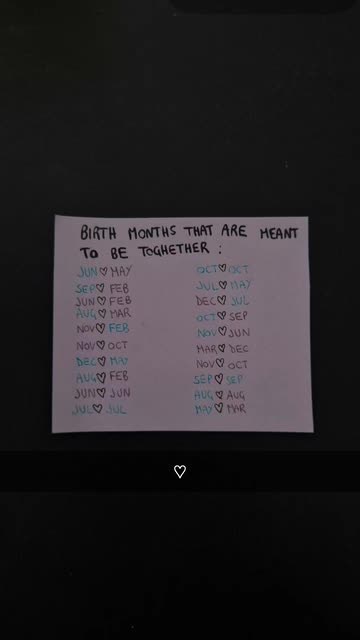 BIRTH MONTHS THAT ARE MEANT
TO BE TOGHETHER :
JUN♡MAY
SEP♡FEB
JUN♡FEB
AUG♡MAR
NOV♡FEB
NOV♡OCT
DEC♡MAY
AUG♡FEB
JUN♡JUN
JUL♡JUL
OCT♡OCT
JUL♡MAY
DEC♡JUL
OCT♡SEP
NOV♡JUN
MAR♡DEC
NOV♡OCT
SEP♡SEP
AUG♡AUG
MAY♡MAR
♡